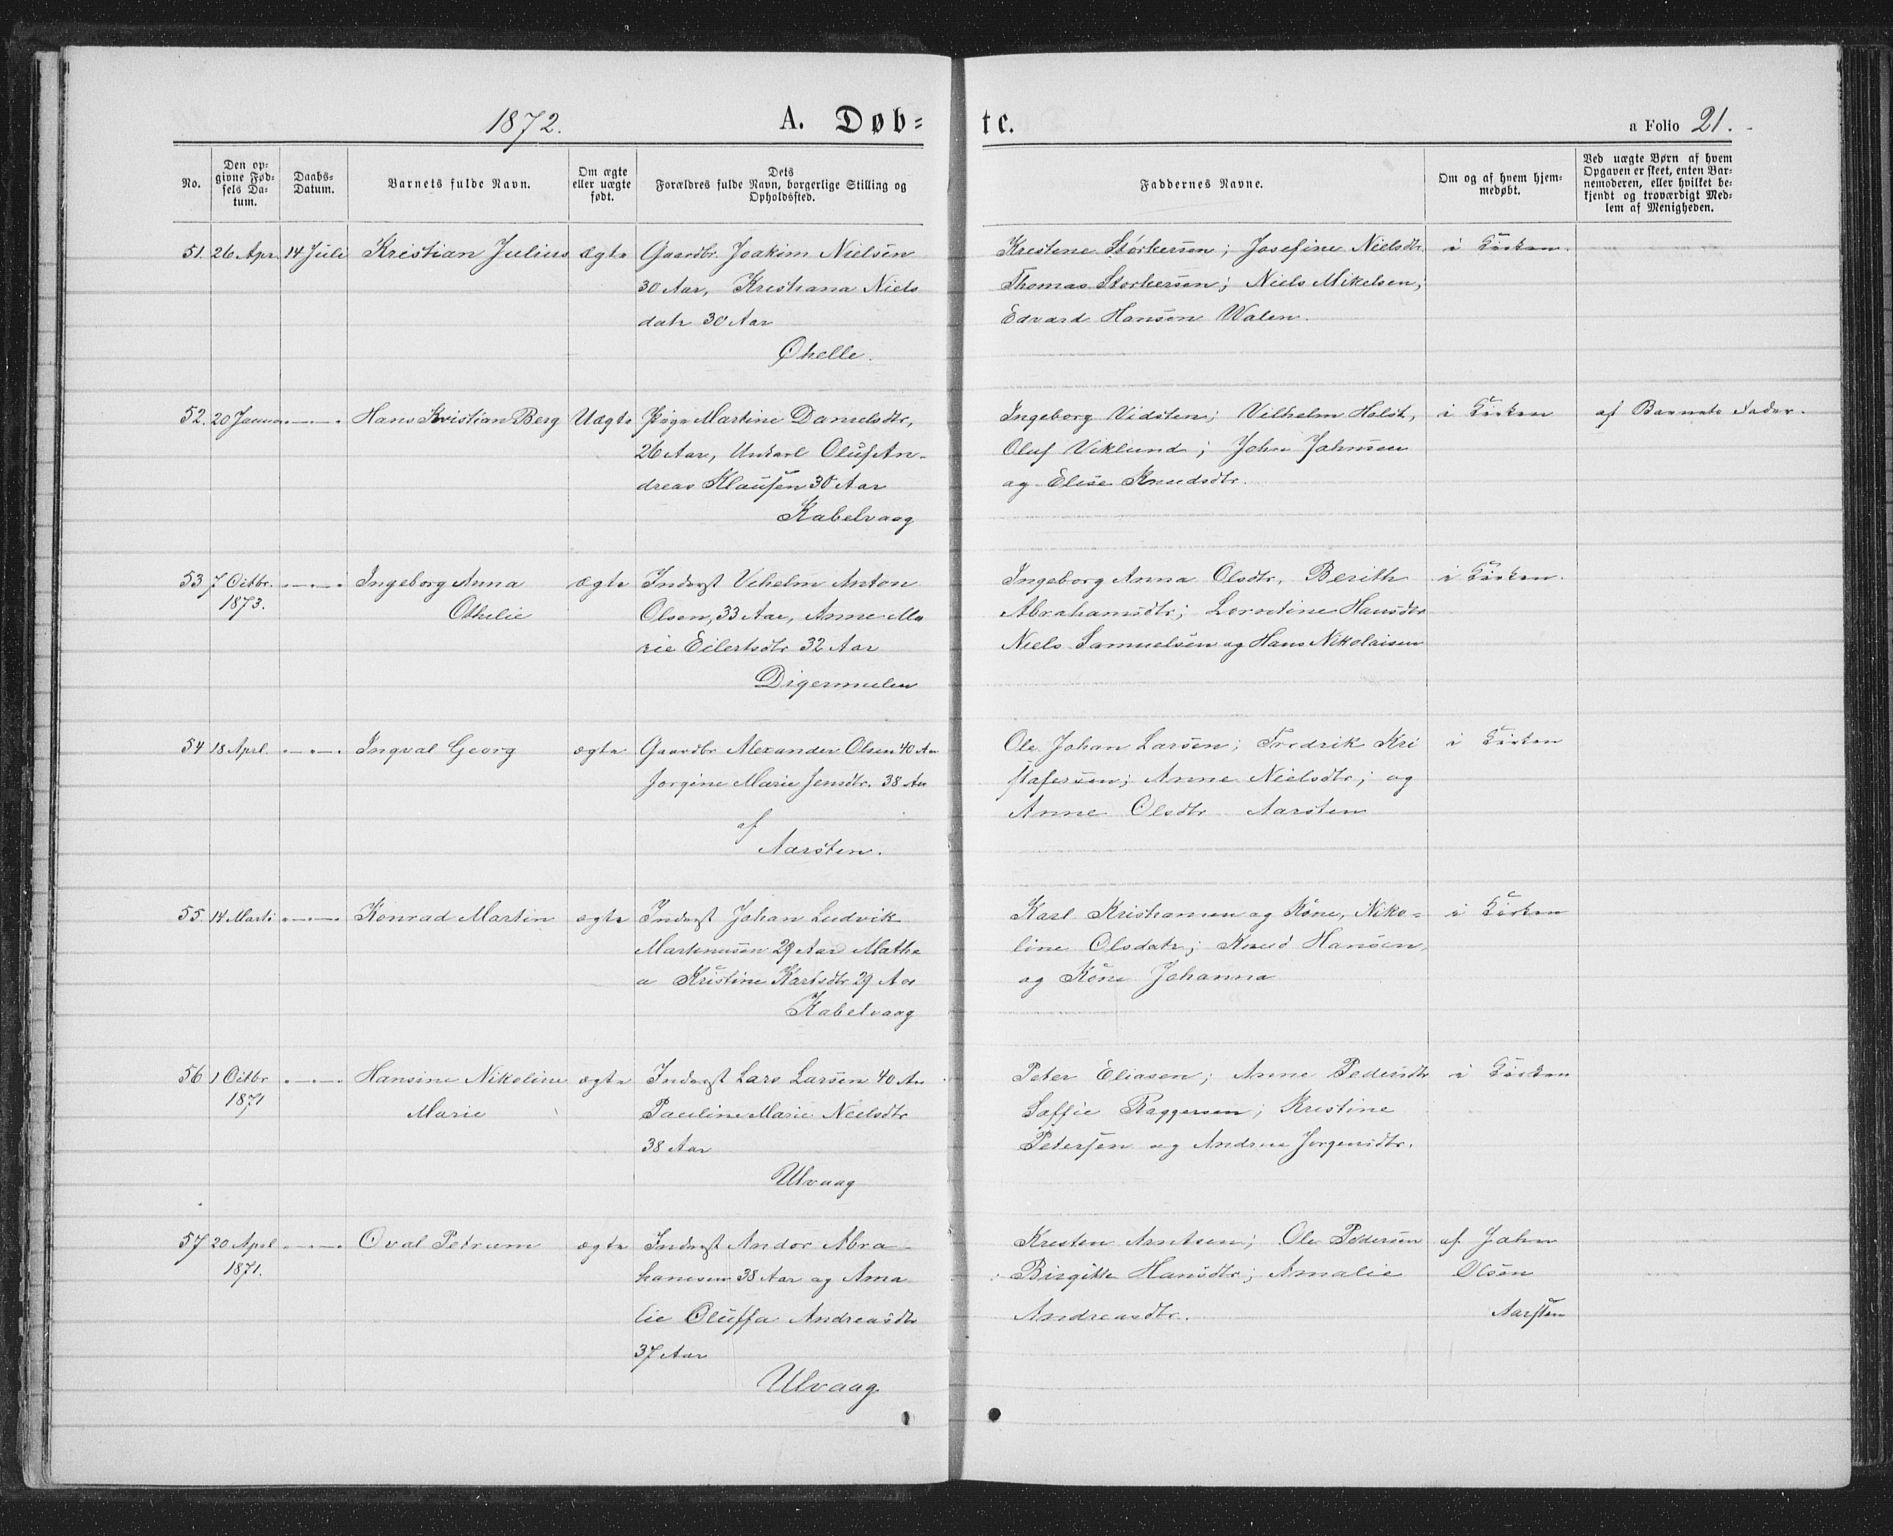 1872. A. Døb= te. a Folio 21.
No.
Den op=
givne Fød=
sels Da=
tum.
Daabs=
Datum.
Barnets fulde Navn.
Om ægte
eller uægte
født.
Dets
Forældres fulde Navn, borgerlige Stilling og
Opholdssted.
Faddernes Navne.
Om og af hvem hjem=
medøbt.
Ved uægte Børn af hvem
Opgaven er skeet, enten Bar=
nemoderen, eller hvilket be=
kjendt og troværdigt Med=
lem af Menigheden.
51. 26 Apr. 14 Juli Kristian Julius ægte Gaardbr. Joakim Nielsen
30 Aar, Kristiana Niels
datr 30 Aar
Øhelle.
Kristene Storkersen; Josefine Nielsdtr i Kirken.
Thomas Storkersen; Niels Mikelsen;
Edvard Hansen Walen.
52. 20 Januar — — Hans Kristian Berg Uægte Pige Martine Danielsdtr,
26 Aar, Unkarl Oluf An-
dreas Klausen 30 Aar
Kabelvaag
Ingeborg Vidsten; Vilhelm Holst, i Kirken af Barnets Fader.
Oluf Viklund; John Johnsen
og Elise Knudsdtr.
53 7 Octbr. — — Ingeborg Anna ægte Inderst Vehelm Anton
1873. Othelie
Olsen, 33 Aar, Anne Ma
rie Eilertsdtr 32 Aar
Digermulen
Ingeborg Anna Olsdtr, Berith i Kirken.
Abrahamsdtr; Lorntine Hansdtr
Niels Samuelsen og Hans Nikolaisen
54 18 Aprl. — — Ingval Georg ægte Gaardbr Alexander Olsen 40 Aar
Jorgine Marie Jensdtr. 38 Aar
af
Aarsten.
Ole Johan Larsen; Fredrik Kri i Kirken
stofersen; Anne Nielsdtr; og
Anne Olsdtr Aarsten
55. 14 Marts — — Konrad Martin ægte Inderst Johan Ludvik
Martinusen 29 Aar Mathe
a Kristine Karlsdtr 29 Aar
Kabelvaag
Karl Kristiansen og Kone, Niko= i Kirken
line Olsdatr; Knud Hansen,
og Kone Johanna
56 1 Octbr — — Hansine Nikoline ægte Inderst Lars Larsen 40 Aar
1871 Marie
Pauline Marie Nielsdtr
38 Aar
Ulvaag
Peter Eliasen; Anne Pedersdtr i Kirken
Soffie Raggersen; Kristine
Petersen og Andrea Jorgensdtr.
57 20 Aprl — — Oval Petrum ægte Inderst Andor Abra
1871.
hamsen 38 Aar og Ama
lie Oluffa Andreasdtr
37 Aar
Ulvaag
Kristen Arntsen; Ole Pedersen af John
Birgitte Hansdtr; Amalie Olsen
Andreasdtr. Aarsten